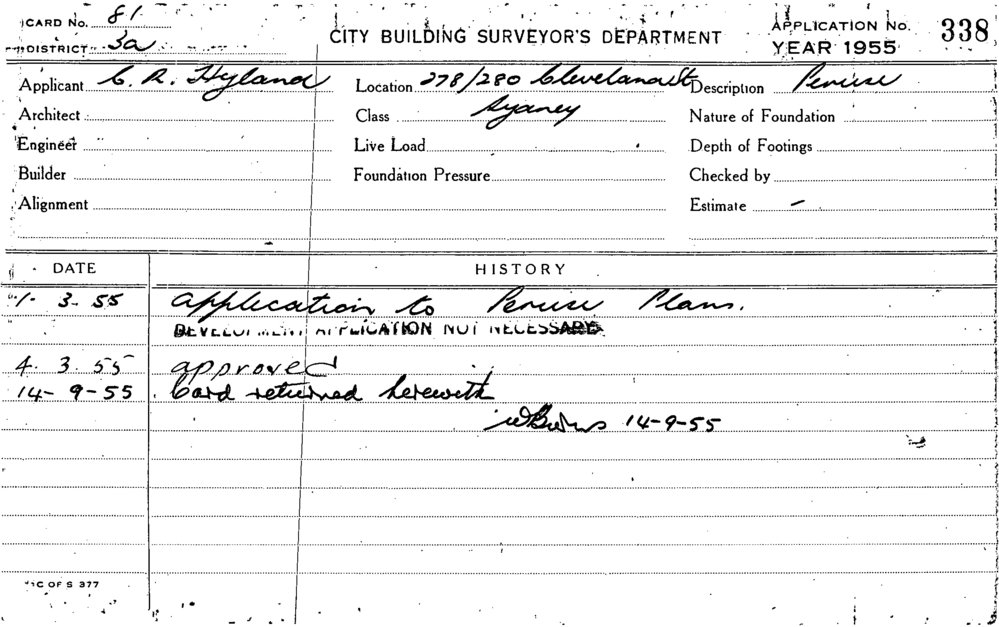 CARD No. 81
DISTRICT 3a
CITY BUILDING SURVEYOR'S DEPARTMENT
APPLICATION No. 338
YEAR 1955
Applicant C. R. Hyland Location 278/280 Cleveland St Description Peruse
Architect Class Sydney Nature of Foundation
Engineer Live Load Depth of Footings
Builder Foundation Pressure Checked by
Alignment Estimate –
DATE HISTORY
1. 3. 55 Application to Peruse Plans.
DEVELOPMENT APPLICATION NOT NECESSARY
4. 3. 55 approved
14-9-55 Card returned herewith
WBurns 14-9-55
C OF S 377